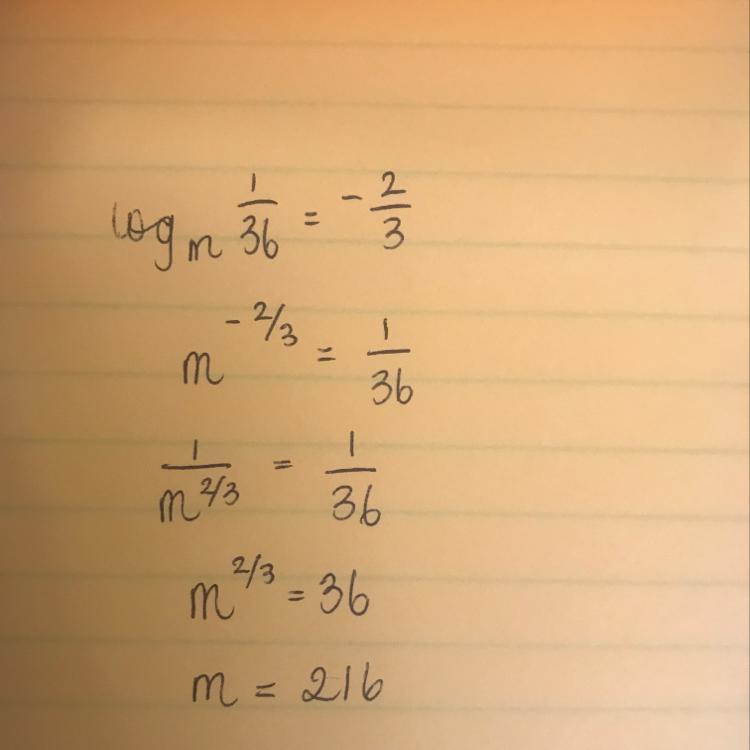 log_m 1/36 = -2/3
m^(-2/3) = 1/36
1/m^(2/3) = 1/36
m^(2/3) = 36
m = 216